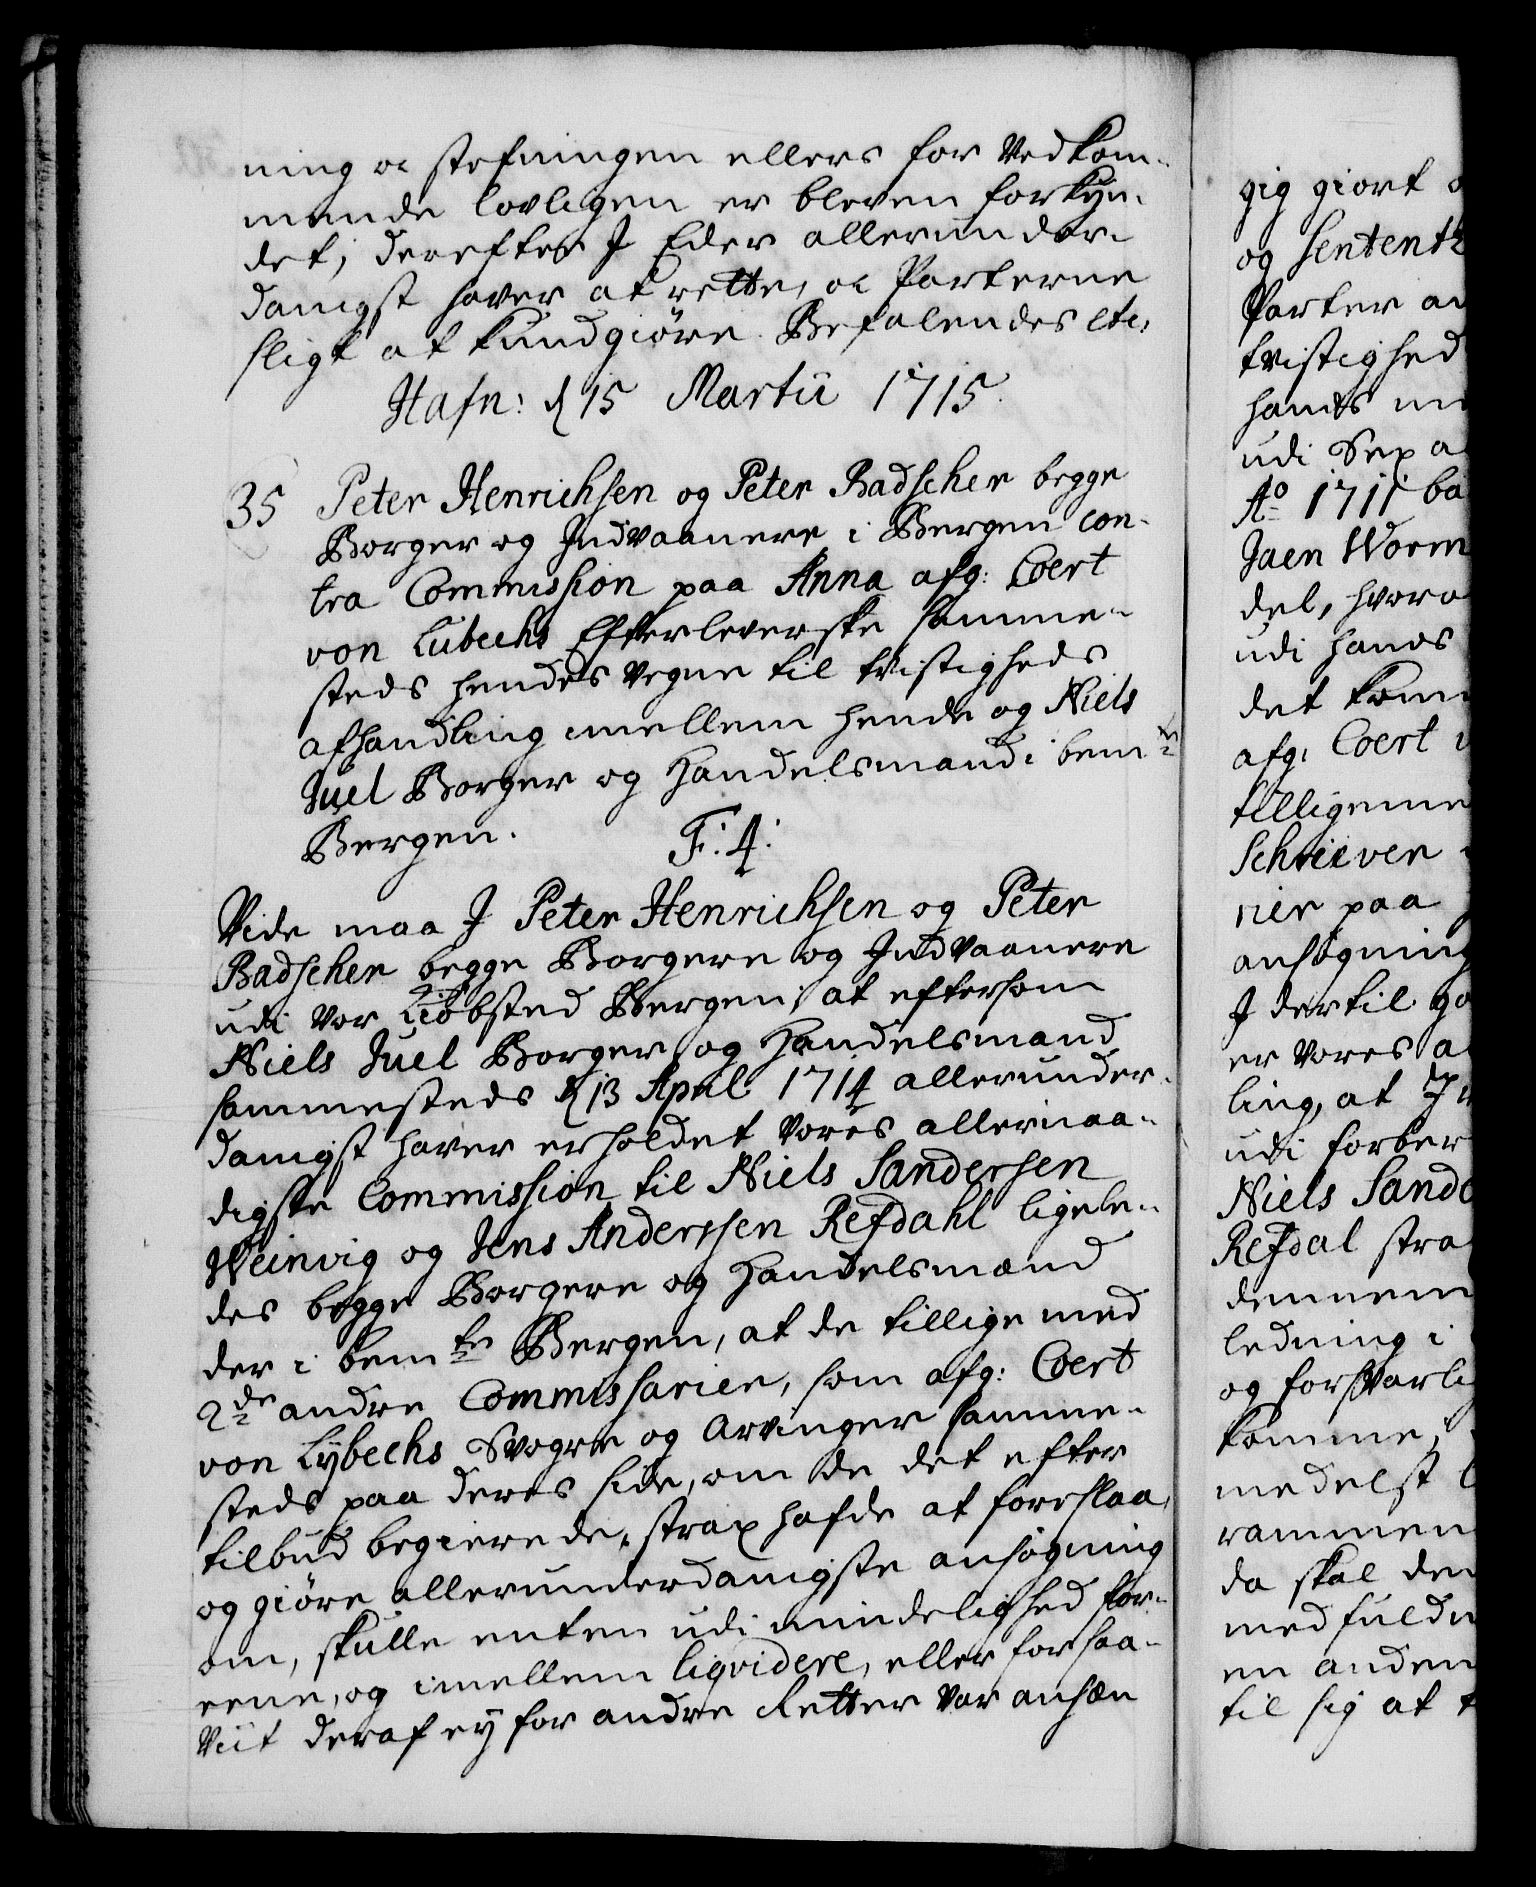 ning oc stefningen ellers for Vedkom-
mende lovligen er bleven forkyn-
det, derefter I Eder allerunder-
danigst haver at rette, oc Parterne
sligt at kundgiøre. Befalendes etc,
Hafn: d 15 Martii 1715.
35 Peter Henrichsen og Peter Badscher begge
Borger og Indvaanere i Bergen con-
tra Commission paa Anna afg: Coert
von Lübechs Efterleverske samme-
steds hendes Vegne til tvistigheds
afhandling imellem hende og Niels
Juel Borger og Handelsmand i bemte
Bergen. F: 4:
Vide maa I Peter Henrichsen og Peter
Badscher begge Borgere og Indvaanere
udi Vor Kiøbsted Bergen, at eftersom
Niels Juel Borger og Handelsmand
sammesteds d 13 April 1714 allerunder-
danigst haver erholdet Vores allernaa-
digste Commission til Niels Sandersen
Weinvig og Jens Anderssen Refdahl ligele-
des begge Borgere og Handelsmænd
der i bemte Bergen, at de tillige med
2de andre Commissarier, som afg: Coert
von Lybechs Svogre og Arvinger samme-
steds paa deres side, om de det efter
tilbud begierede, strax hafde at foreslaa,
og giøre allerunderdanigste ansøgning
om, skulle enten udi mindelighed for-
eene, og imellem liqvidere, eller forsaa-
Viit deraf ey for andre Retter Var ansæn
gig giort o
og Sententz
Parter an
tvistighed
hands
udi Sex a
Ao 1711 ba
Jaen Worm
del, hvora
udi hands
det kom
afg: Coert v
tilligeme
Schriever
rier paa
ansøgning
I dertil go
er Vores a
ling, at I
udi forber
Niels Sande
Refdal stra
dennem
ledning i
og forsvarli
komme,
medelst l
rammen
da skal den
med fuld
en anden
til sig at t